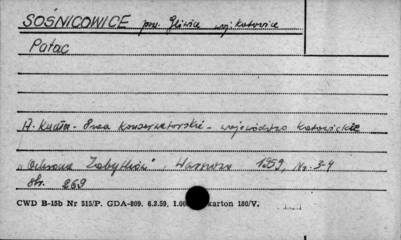 SOŚNICOWICE pow. Gliwice woj. Katowice
Pałac
A. Kudła - Prace konserwatorskie - województwo katowickie
"Ochrona Zabytków", Warszawa 1959, Nr. 3-4
str. 269
CWD B-15b Nr 515/P. GDA-809. 6.3.59, 1.00 karton 180/V.